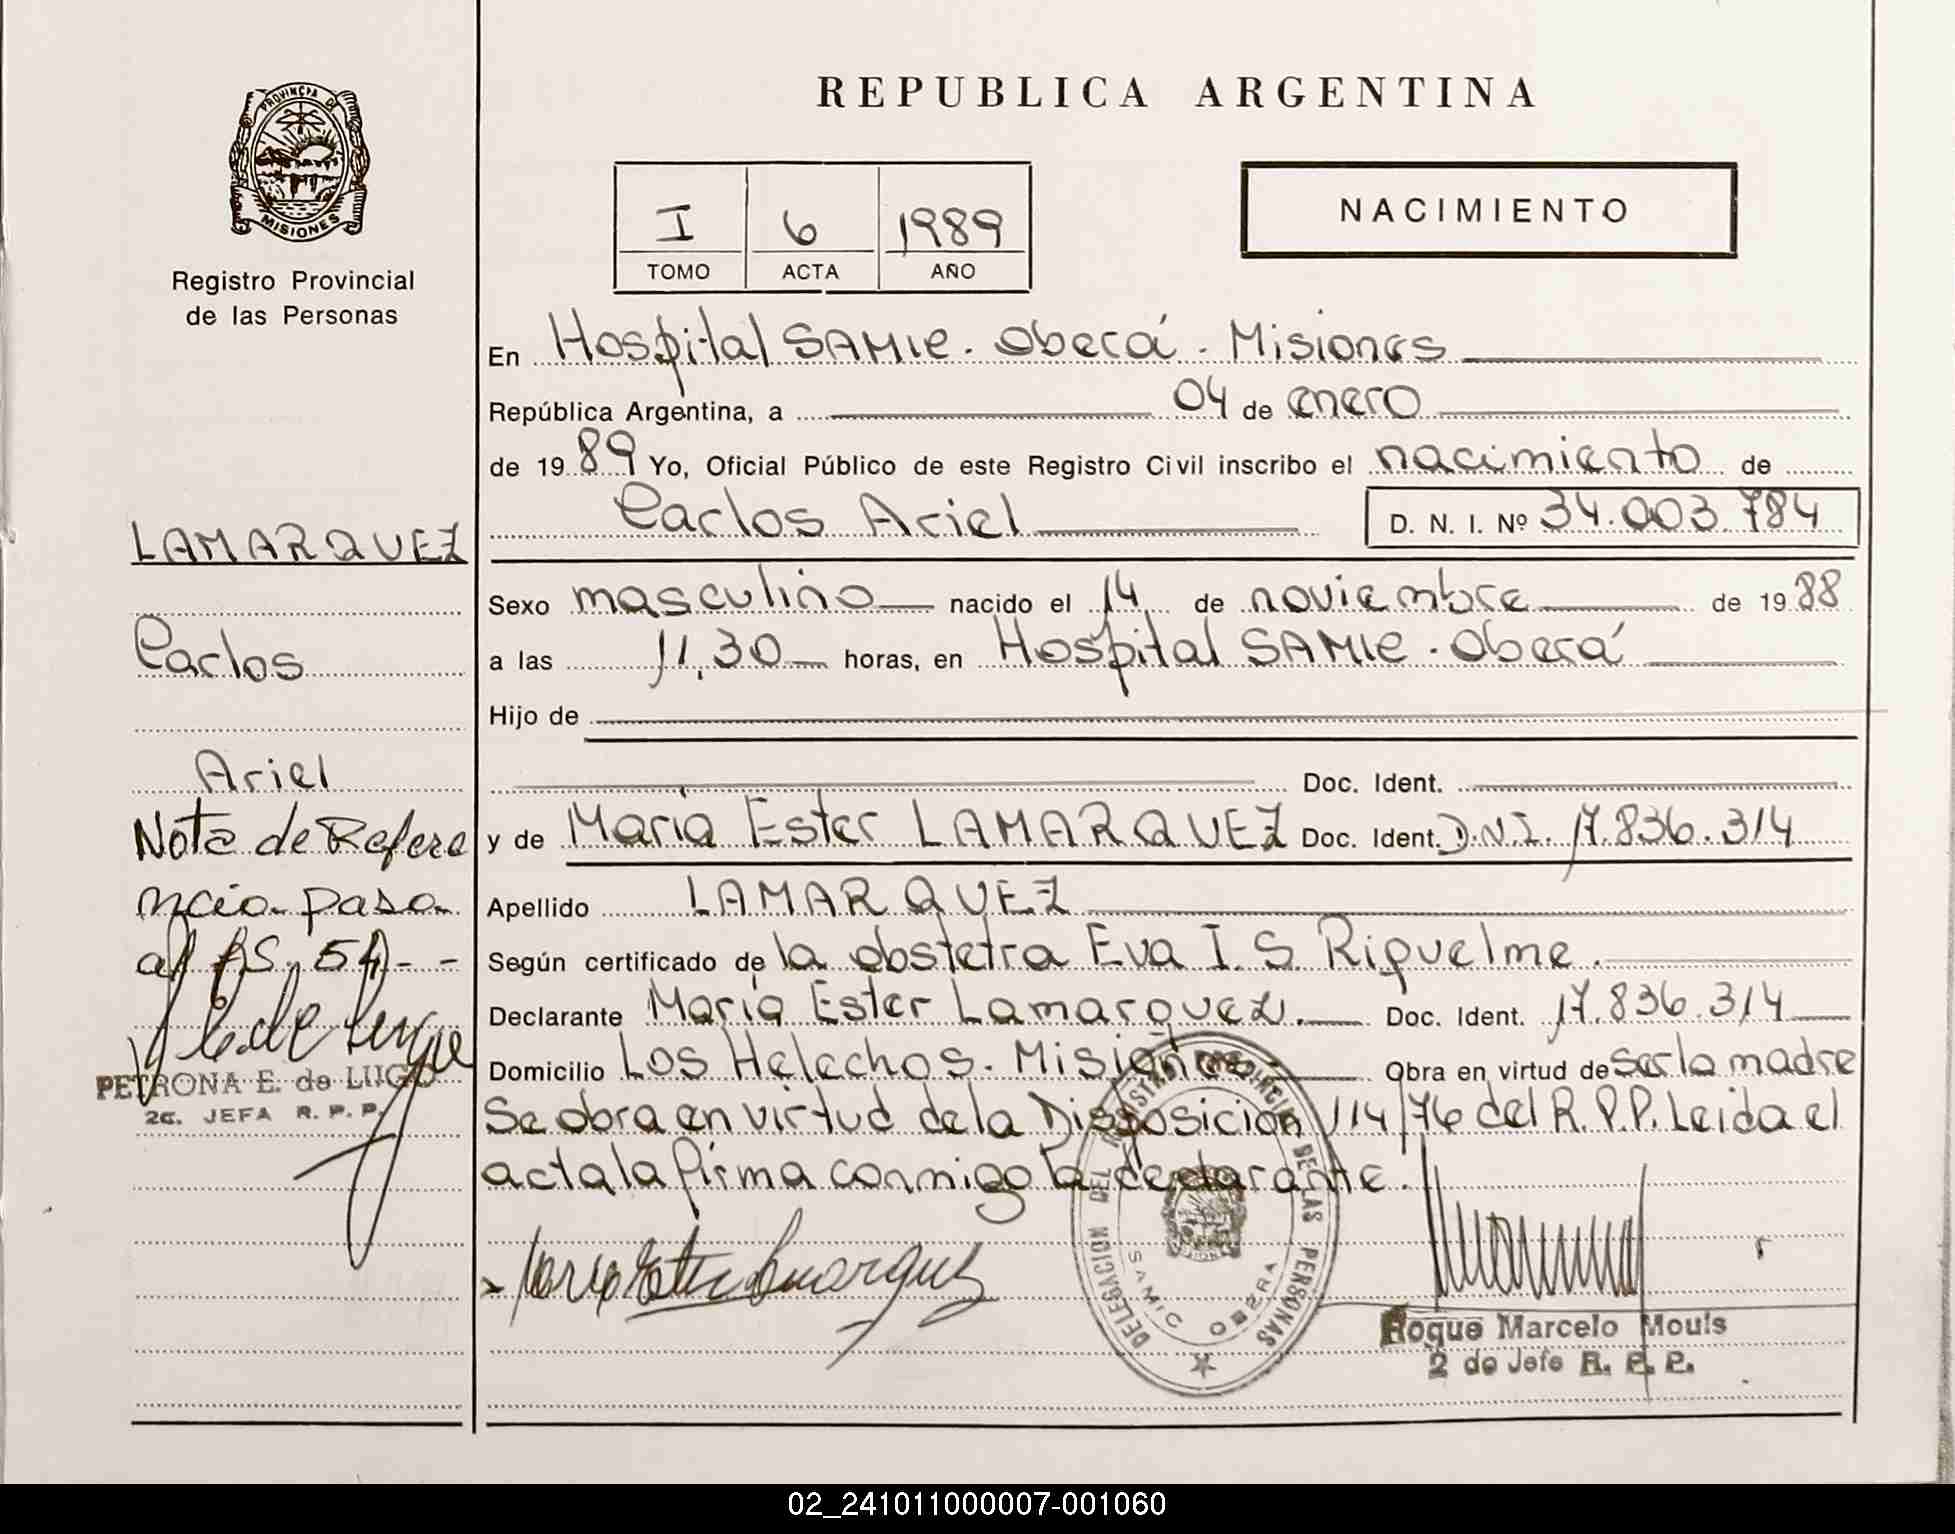 REPUBLICA ARGENTINA
PROVINCIA DE
MISIONES
Registro Provincial
de las Personas
I 6 1989
TOMO ACTA AÑO
NACIMIENTO
En Hospital SAMIC. Oberá. Misiones
República Argentina, a 04 de enero
de 1989 Yo, Oficial Público de este Registro Civil inscribo el nacimiento de
Carlos Ariel D. N. I. Nº 34.003.784
Sexo masculino nacido el 14 de noviembre de 1988
a las 11,30 horas, en Hospital SAMIC. Oberá
Hijo de
Doc. Ident.
y de María Ester LAMARQUEZ Doc. Ident. D.N.I. 17.836.314
Apellido LAMARQUEZ
Según certificado de la obstetra Eva I. S. Riquelme.
Declarante María Ester Lamarquez. Doc. Ident. 17.836.314
Domicilio Los Helechos. Misiones Obra en virtud de ser la madre
Se obra en virtud de la Disposición 114/76 del R.P.P. Leida el
acta la firma conmigo la declarante.
María Ester Lamarquez
DELEGACION DEL REGISTRO PROVINCIAL DE LAS PERSONAS
SAMIC OBERA
Roque Marcelo Mouls
2 do Jefe R. P. P.
LAMARQUEZ
Carlos
Ariel
Nota de Refere
ncia pasa
al fs. 54--
PETRONA E. de LUGO
2a. JEFA R. P. P.
02_241011000007-001060